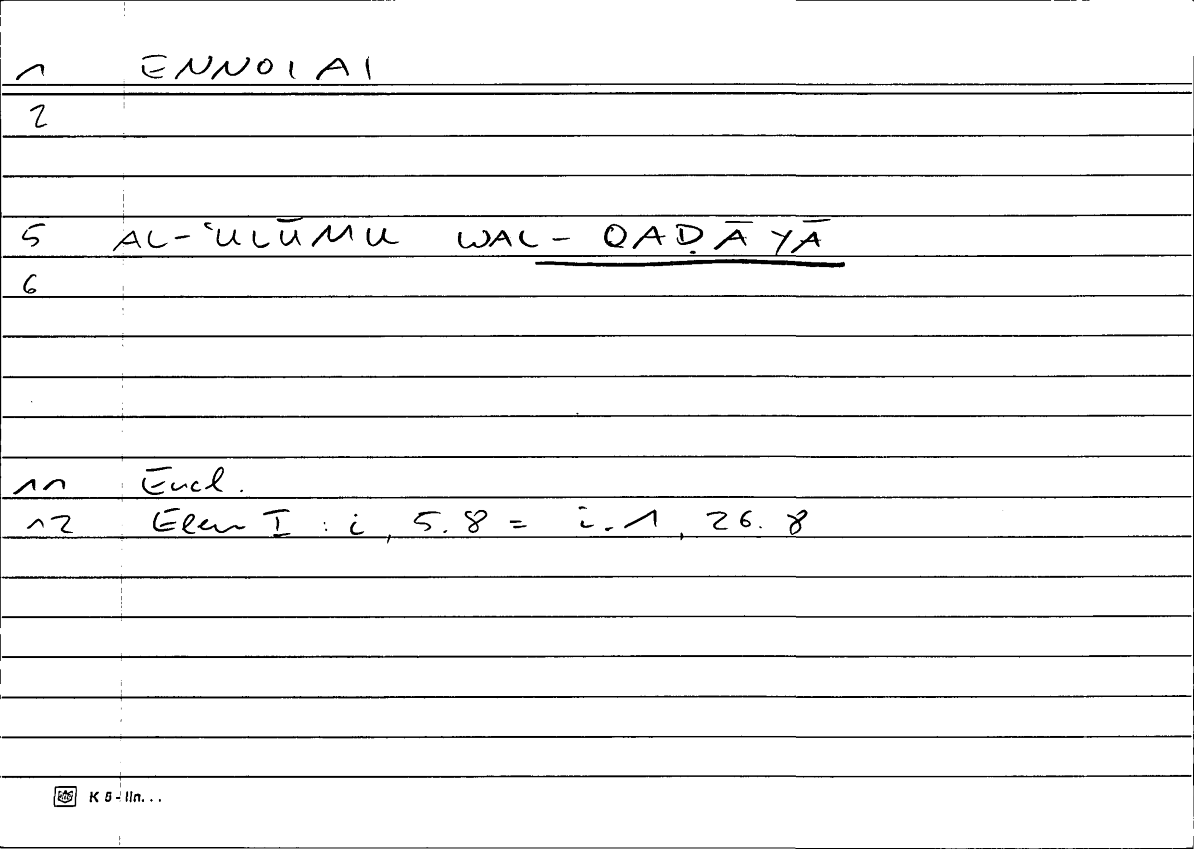 1 ENNOIAI
2
5 AL-ʿULŪMU WAL-QAḌĀYĀ
6
11 Eucl.
12 Elem I : i, 5.8 = i.1, 26.8
K 5-lin...